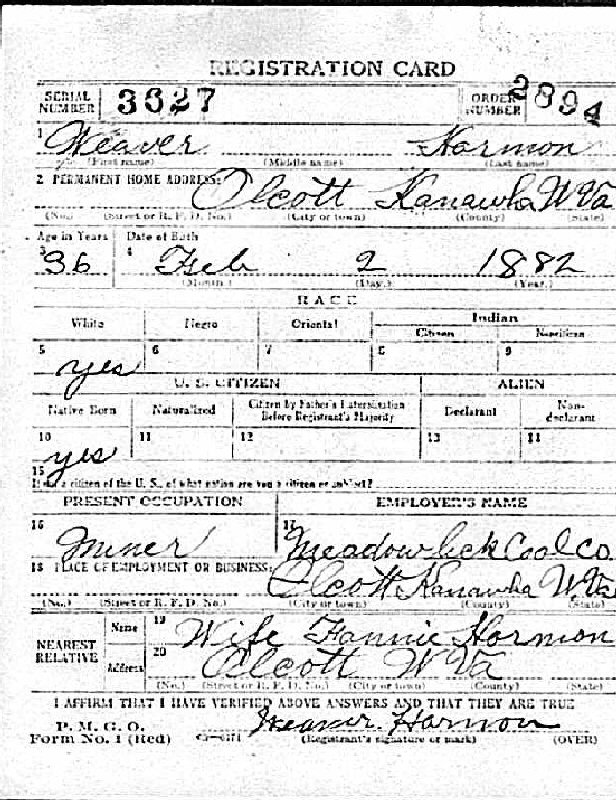 REGISTRATION CARD
SERIAL NUMBER 3327 ORDER NUMBER 2894
1 Weaver Harmon
(First name) (Middle name) (Last name)
2 PERMANENT HOME ADDRESS: Olcott Kanawha W Va
(No.) (Street or R. F. D. No.) (City or town) (County) (State)
Age in Years Date of Birth
3 36 4 Feb 2 1882
(Month.) (Day.) (Year.)
RACE
White Negro Oriental Indian
Citizen Noncitizen
5 yes 6 7 8 9
U. S. CITIZEN ALIEN
Native Born Naturalized Citizen by Father's Naturalization Before Registrant's Majority Declarant Non-declarant
10 yes 11 12 13 14
15 If not a citizen of the U. S., of what nation are you a citizen or subject?
PRESENT OCCUPATION EMPLOYER'S NAME
16 Miner 17 Meadow lick Coal Co
18 PLACE OF EMPLOYMENT OR BUSINESS: Olcott Kanawha W. Va
(No.) (Street or R. F. D. No.) (City or town) (County) (State)
NEAREST RELATIVE Name 19 Wife Fannie Harmon
Address 20 Olcott W Va
(No.) (Street or R. F. D. No.) (City or town) (County) (State)
I AFFIRM THAT I HAVE VERIFIED ABOVE ANSWERS AND THAT THEY ARE TRUE
P. M. G. O.
Form No. 1 (Red) Weaver Harmon
(Registrant's signature or mark) (OVER)